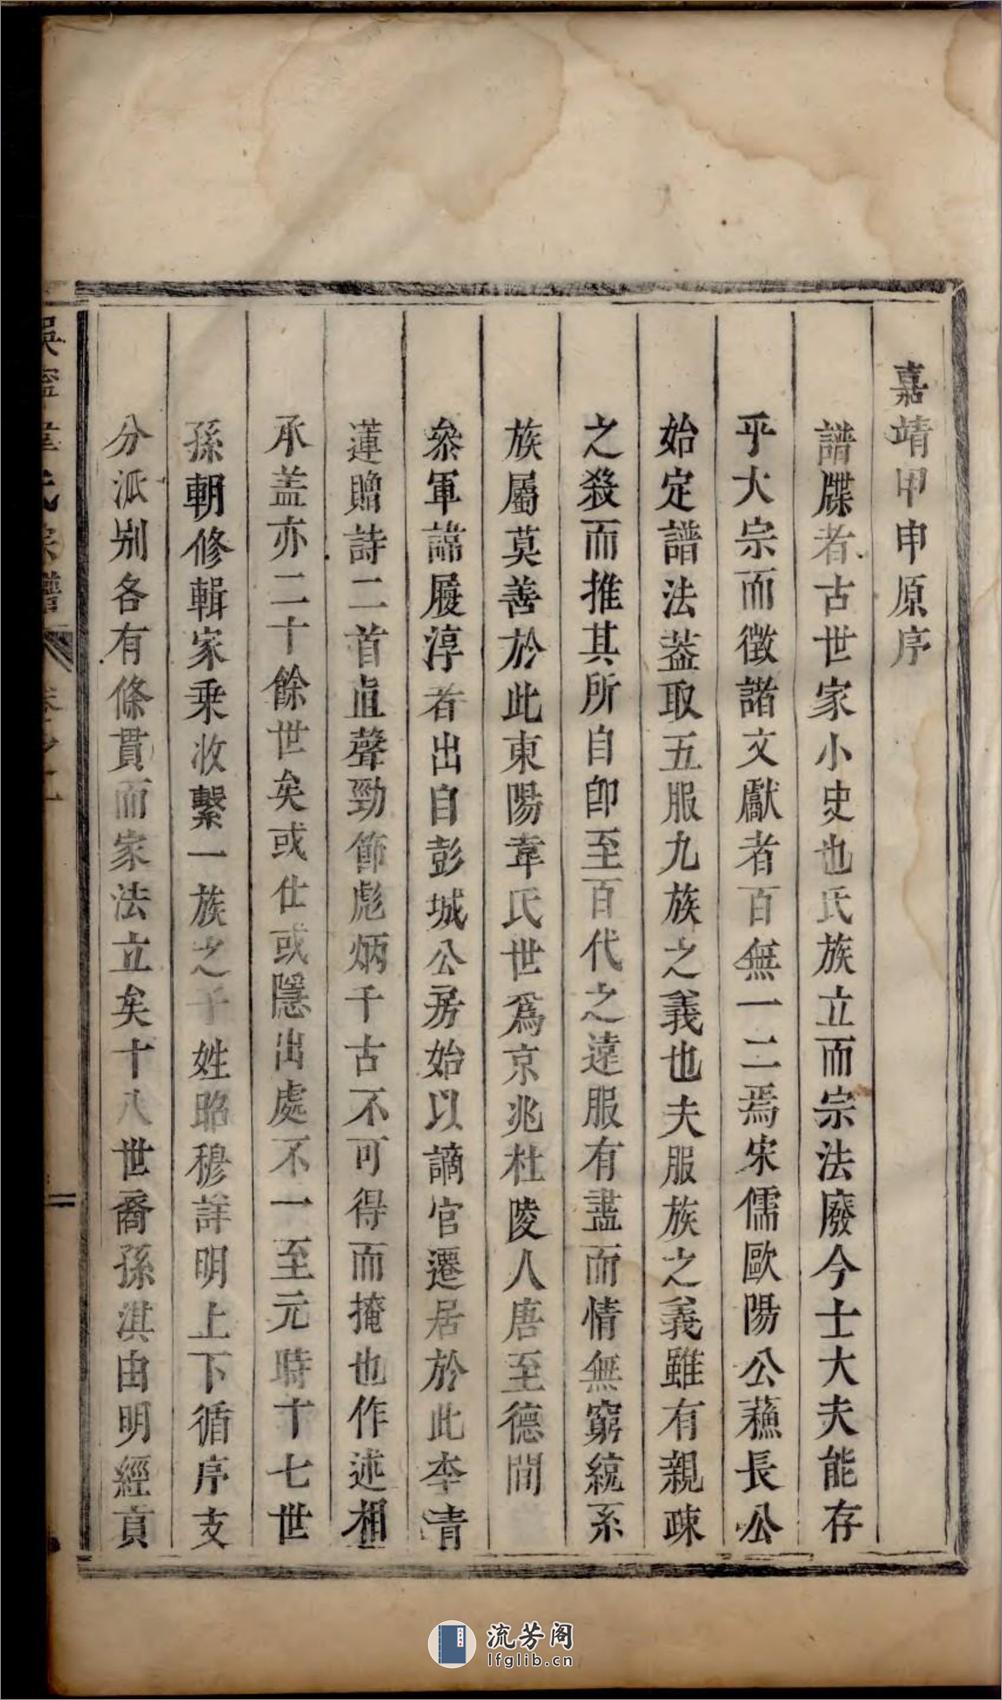 嘉靖甲申原序
譜牒者古世家小史也氏族立而宗法廢今士大夫能存
乎大宗而徵諸文獻者百無一二焉宋儒歐陽公蘓長公
始定譜法葢取五服九族之義也夫服族之義雖有親疎
之殺而推其所自卽至百代之遠服有盡而情無窮統系
族屬莫善於此東陽韋氏世爲京兆杜陵人唐至德間
叅軍諦履淳者出自彭城公房始以謫官遷居於此李青
蓮贈詩二首直聲勁節彪炳千古不可得而掩也作述相
承盖亦二十餘世矣或仕或隱出處不一至元時十七世
孫朝修輯家乗收繫一族之子姓昭穆詳明上下循序支
分派别各有條貫而家法立矣十八世裔孫淇由明經貢
吳寧韋氏宗譜 卷之一
流芳阁
lfglib.cn